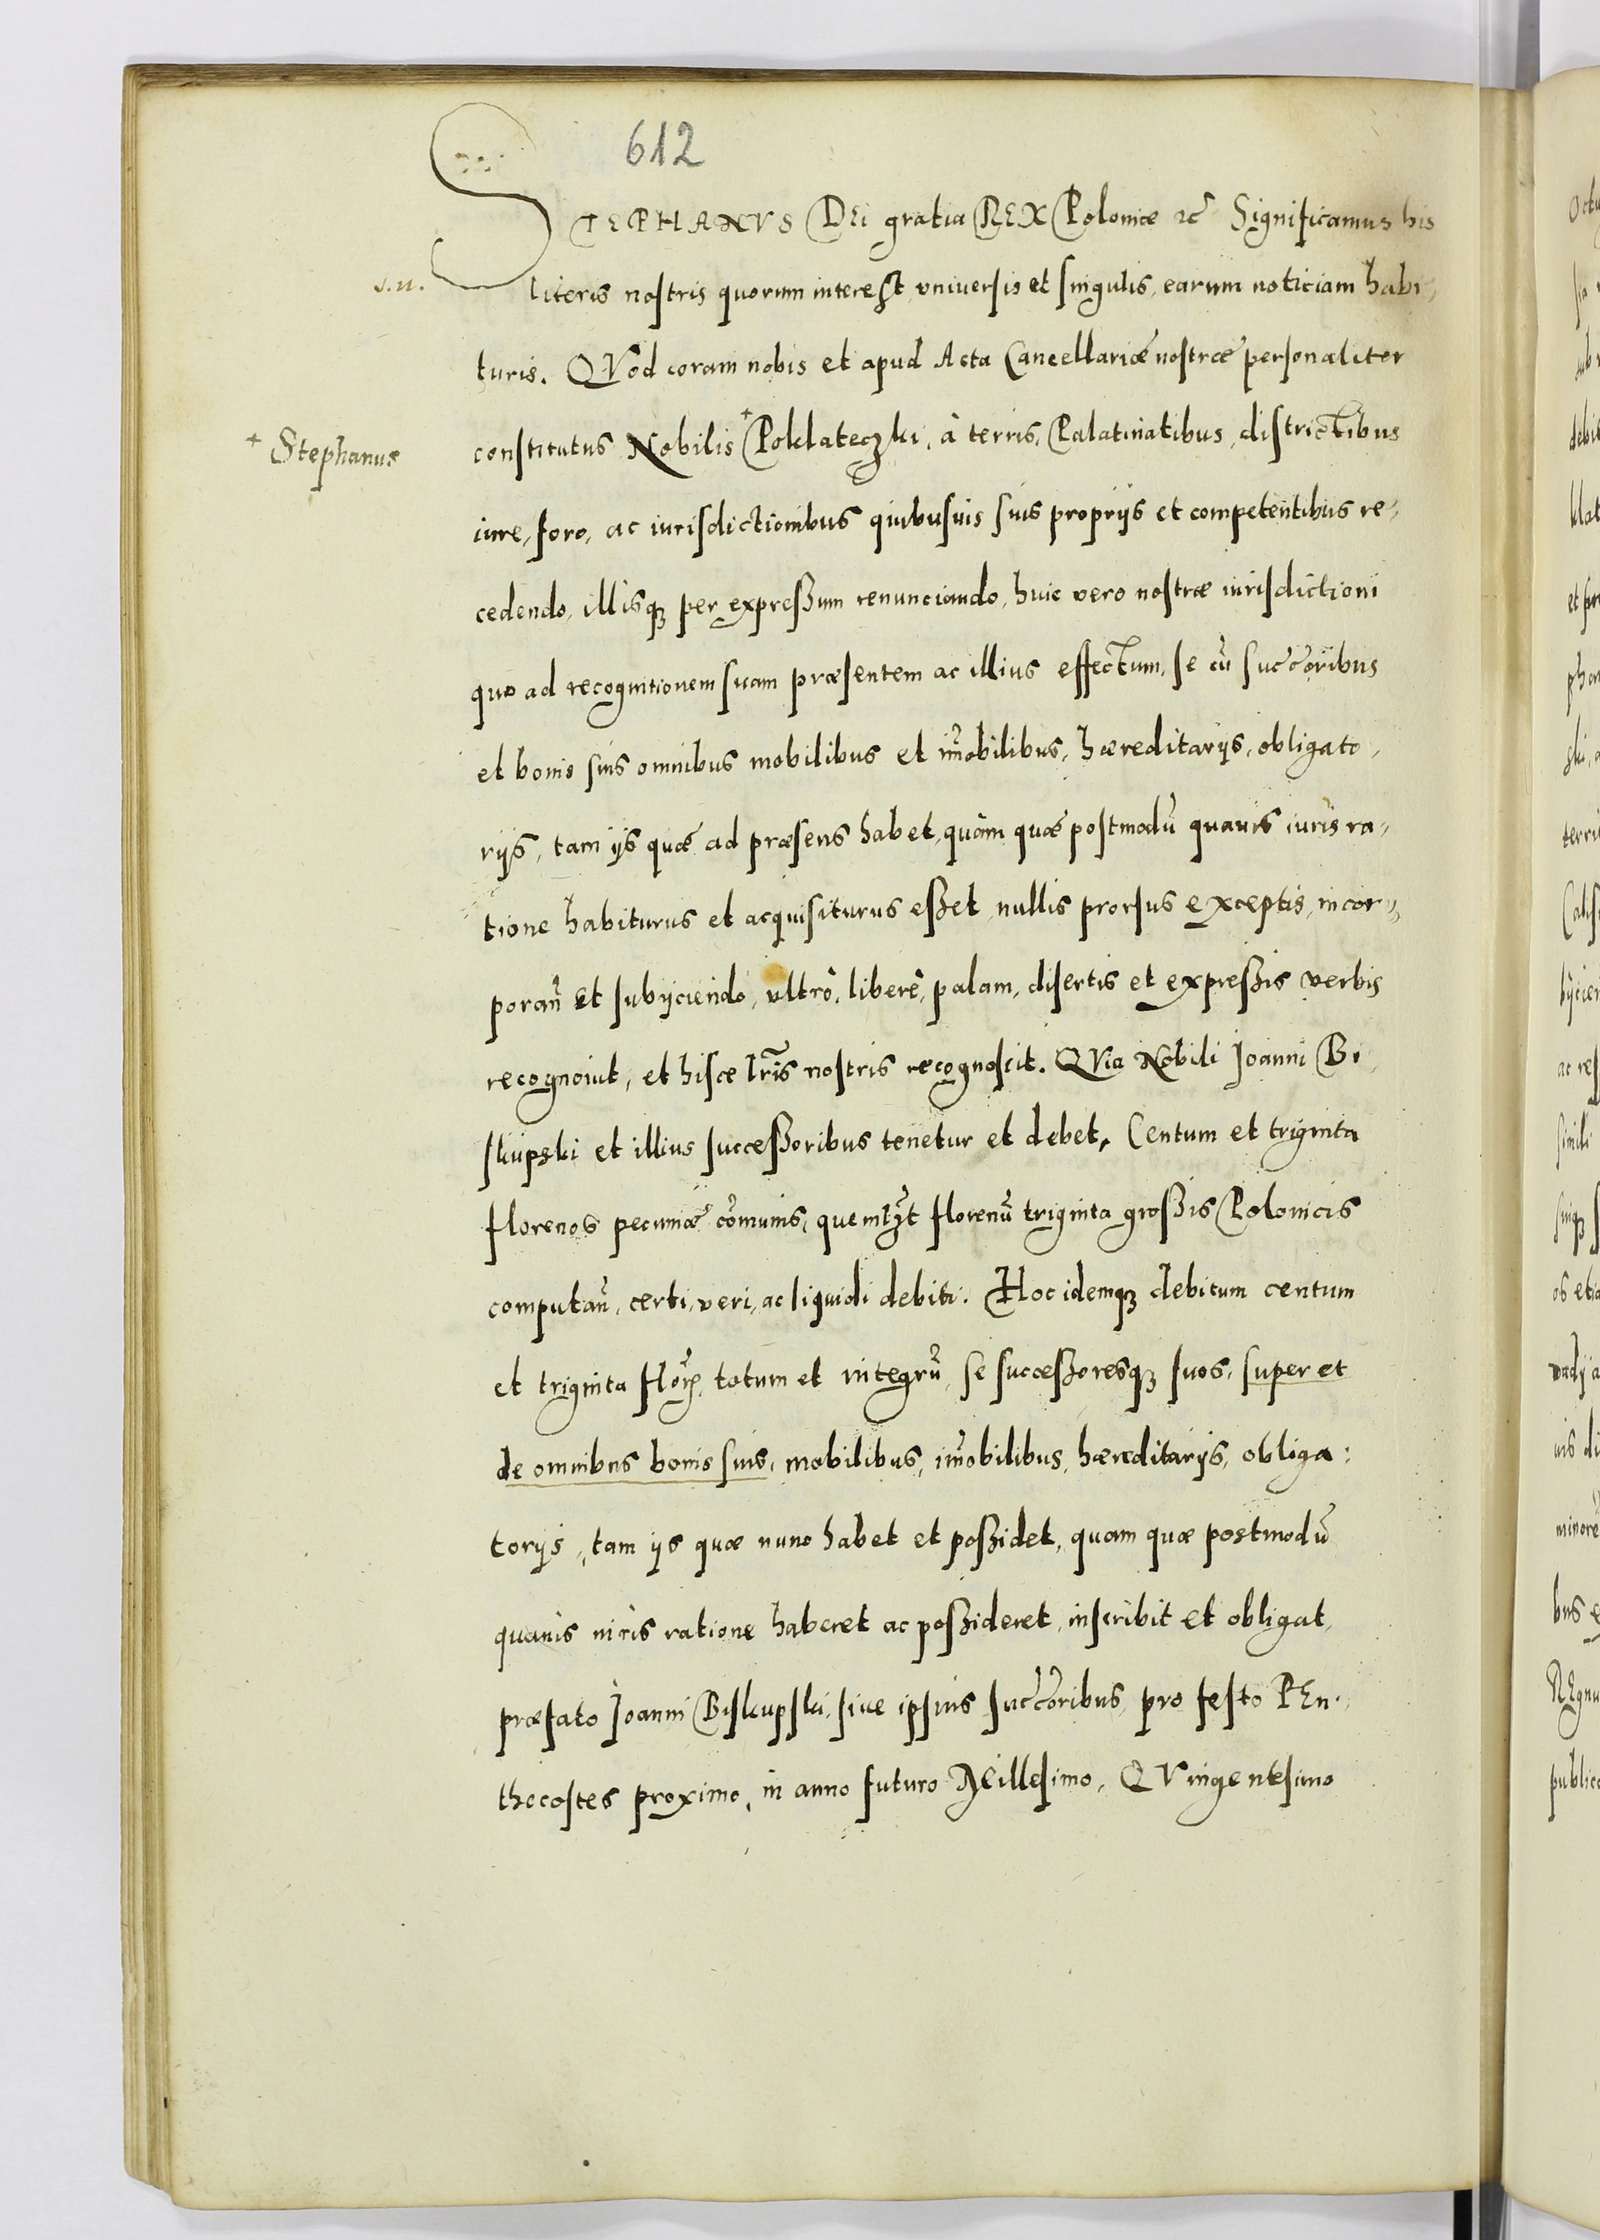 612
STEPHANVS DEi gratia REX Poloniæ etc̃ Significamus his
s.n.
literis nostris quorum interest vniuersis et singulis, earum noticiam habi-
turis. QVod coram nobis et apud Acta Cancellariæ nostræ personaliter
+ Stephanus
constitutus Nobilis + Poklateczki, à terris, Palatinatibus, districtibus
iure, foro, ac iurisdictionibus quibusuis suis proprijs et competentibus re-
cedendo, illisq3 per expreßum renunciando, huic vero nostræ iurisdictioni
quo ad recognitionem suam præsentem ac illius effectum, se cũ succ̃oribus
et bonis suis omnibus mobilibus et im̃obilibus, hæreditarijs, obligato-
rijs, tam ijs quæ ad præsens habet, quàm quæ postmodũ quauis iuris ra-
tione habiturus et acquisiturus eßet, nullis prorsus exceptis, incor-
poran̄ et subijciendo, vltrò, liberè, palam, disertis et expreßis verbis
recognouit, et hisce lr̃is nostris recognoscit. QVia Nobili Joanni Bi-
skupski et illius succeßoribus tenetur et debet, Centum et triginta
florenos pecuniæ com̃unis, quemlꝫt florenũ triginta großis Polonicis
computan̄, certi, veri, ac liquidi debiti. Hoc idemq3 debitum centum
et triginta flor̃, totum et integrũ, se succeßoresq3 suos, super et
de omnibus bonis suis, mobilibus, im̃obilibus, hæreditarijs, obliga:
torijs, tam ijs quæ nunc habet et poßidet, quam quæ postmodũ
quauis iuris ratione haberet ac poßideret, inscribit et obligat,
præfato Joanni Biskupski, siue ipsius succ̃oribus, pro festo PEn-
thecostes proximo, in anno futuro Millesimo, QVingentesimo